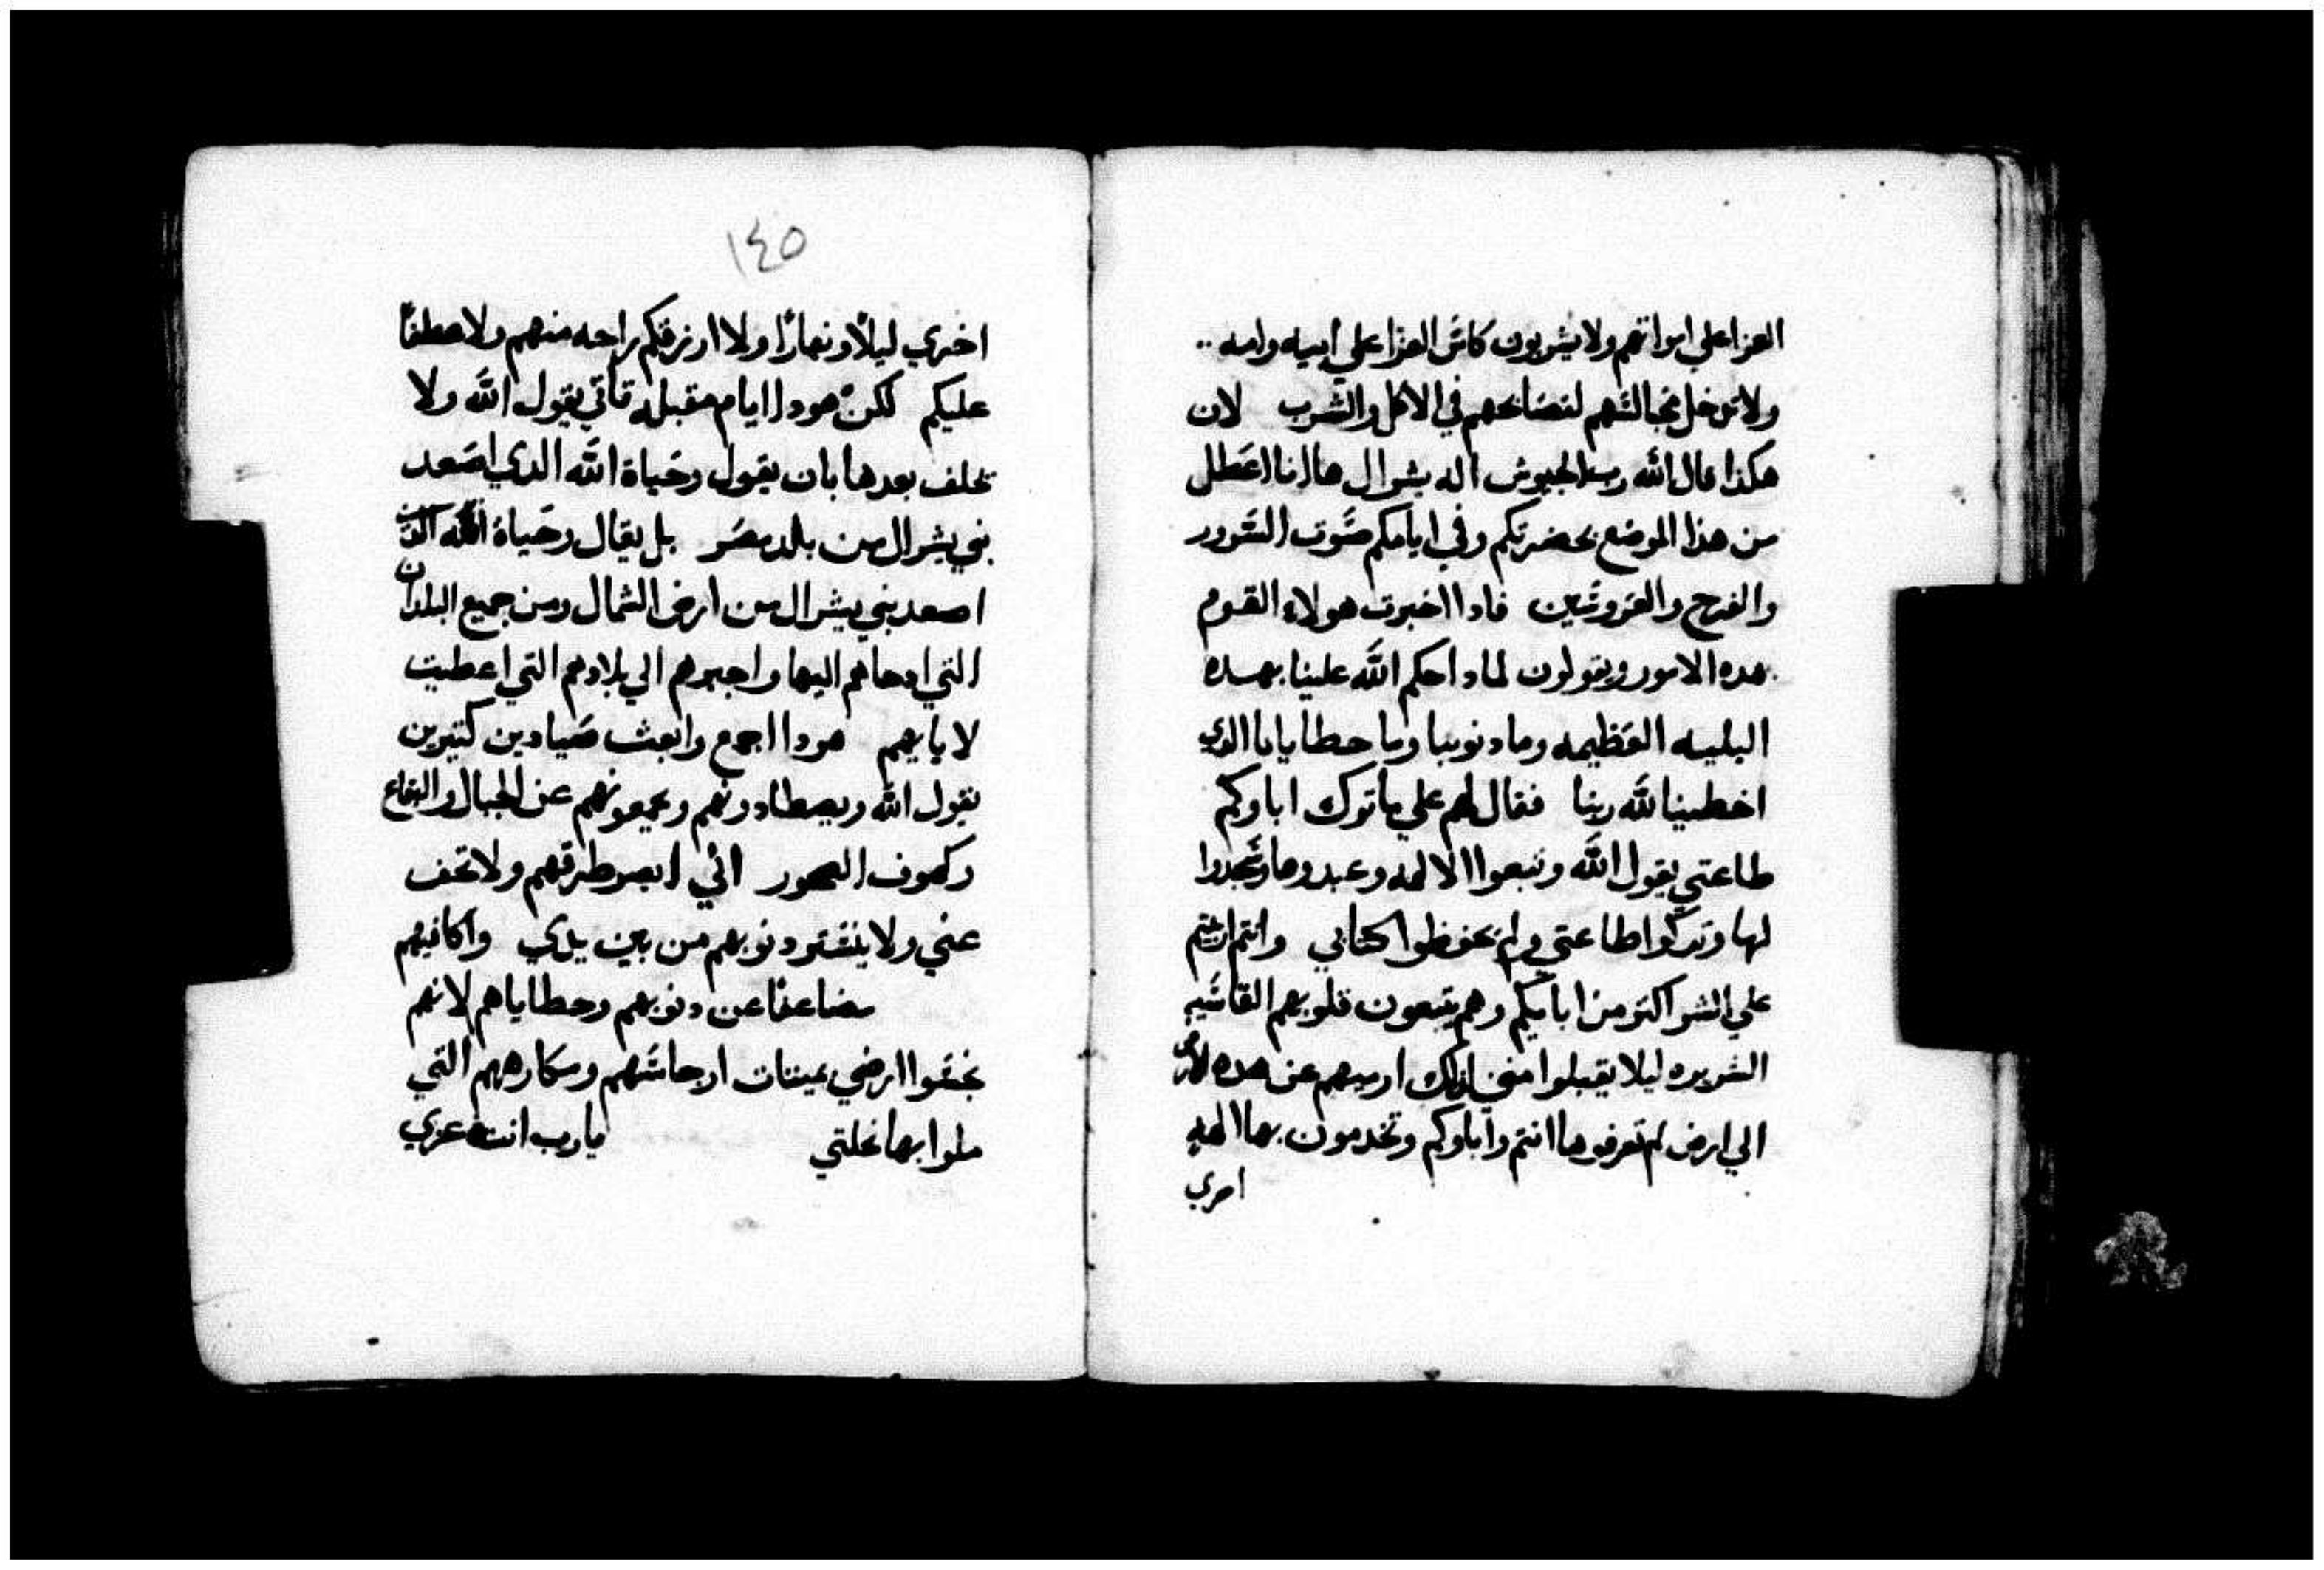 العزا علي امواتهم ولا يشربون كاس العزا علي ابيه وامه ..
ولا تدخل مجالسهم لتصابحهم في الاكل والشرب لان
هكذا قال الله رب الجيوش اله يشرال هاانا اعطل
من هذا الموضع بحضرتكم وفي ايامكم صوت السرور
والفرح والعروسين فادا اخبرت هولاء القوم
بهده الامور ويقولون لمادا حكم الله علينا بهده
البليه العظيمه وما دنوبنا وما خطايانا الدي
اخطينا لله ربنا فقال لهم علي ما تركت اباوكم
طاعتي يقول الله وتبعوا الالهه وعبدوها وسجدوا
لها وتركوا طاعتي ولم يحفظوا كتابي وانتم
علي الشر اكتر من ابايكم وهم يتبعون قلوبهم القاسيه
الشريره ليلا يقبلوا مني لدلك ارميهم عن هده الارض
الي ارض لم تعرفوها انتم واباوكم وتخدمون بها الهه
اخري
١٤٥
اخري ليلًا ونهارًا ولا ارزقكم راحه منهم ولا عطفًا
عليكم لكن هودا ايام مقبله تاتي يقول الله ولا
يحلف بعدها بان يقول وحياة الله الدي اصعد
بني يشرال من بلد مصر بل يقال وحياة الله
اصعد بني يشرال من ارض الشمال ومن جميع البلدان
التي ادحاهم اليها واجيبهم الي بلادهم التي اعطيت
لابايهم هودا اجمع وابعث صيادين كتيرين
يقول الله ويصطادونهم ويجمعونهم عن الجبال والبقاع
وكهوف الصخور اني ابصر طرقهم ولا تخف
عني ولا ينفتر دنوبهم من بين يدي واكافيهم
مضاعفًا عن دنوبهم وخطاياهم لانهم
نجسوا ارضي بميتات ارجاسهم ومكارههم التي
ملوا بها نحلتي يارب انت عزي